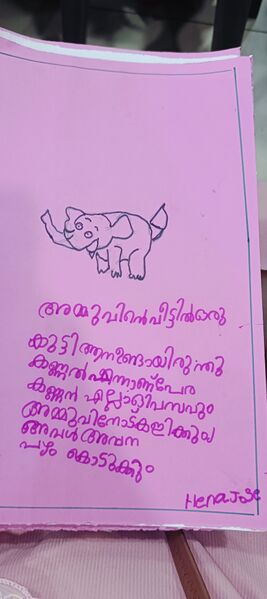 അമ്മുവിൻെവീട്ടിൽഒരു
കുട്ടി ആനണ്ടായിരുന്നു
കണ്ണൻ എന്നാണ്പേര
കണ്ണൻ എല്ലാദിവസവും
അമ്മുവിനോടകളിക്കും
അവൾ അവന
പഴം കൊടുക്കും
Hena Jose